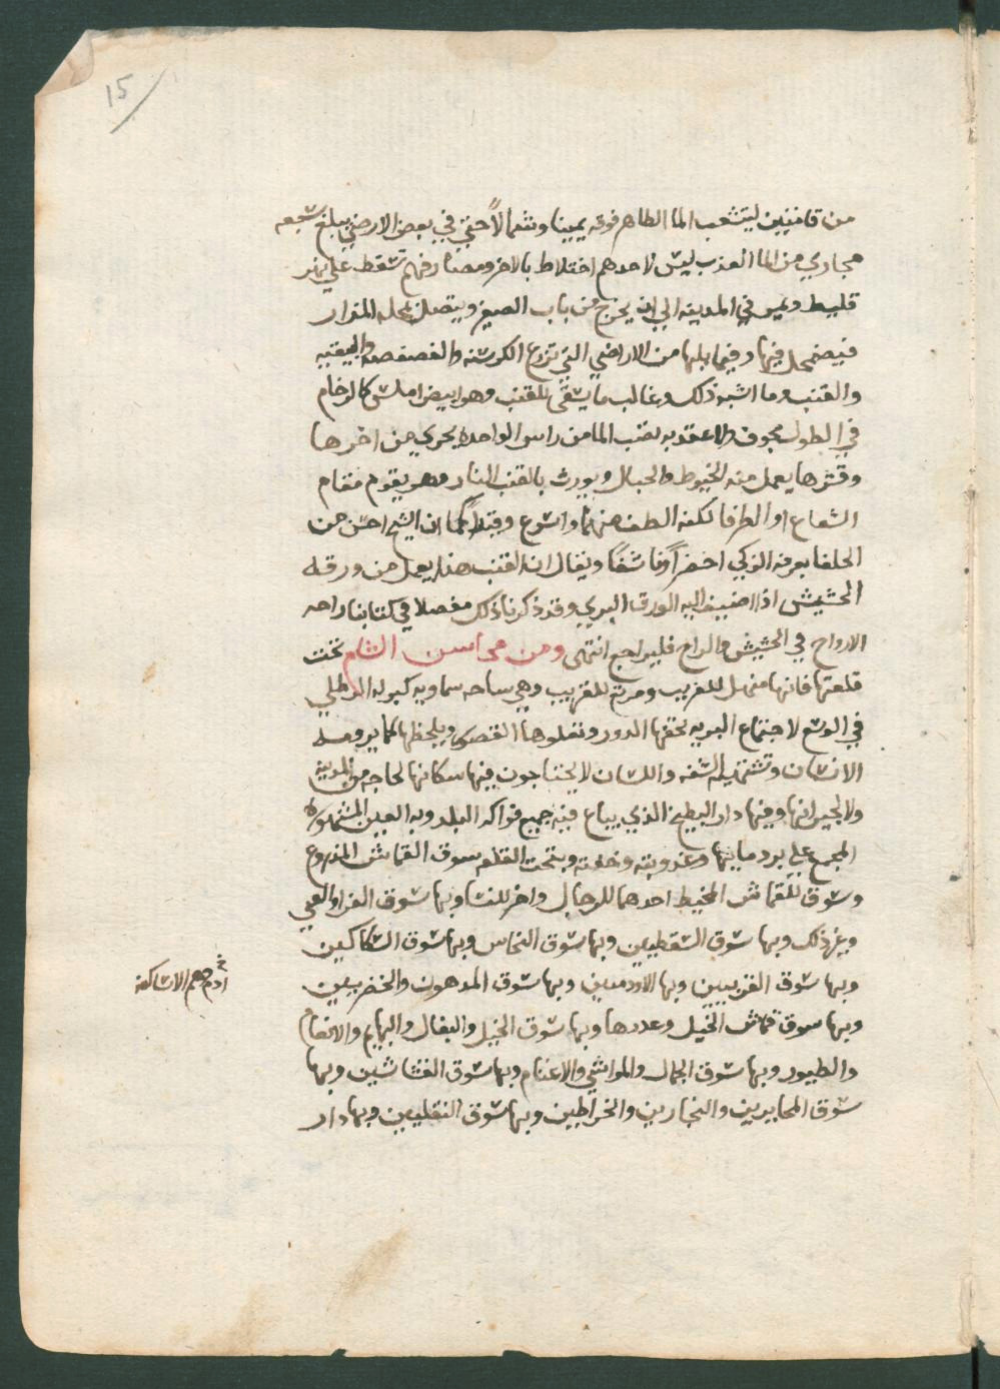 15
من قانيتين ليتشعب الما الطاهر فوقه يمينا وشمالا حتى في بعض الاراضي يبلغ سبعه
مجاري من الما العذب ليس لاحدهم اختلاط بالاخر ومصارفهم تسقط على نهر
قليط ويمر في المدينه الى ان يخرج من باب الصغير ويتصل بمحله المزار
فيضمحل فيها وفيما يليها من الاراضي التي تزرع الكرسنه والفصفصه والبيقيه
والقنب وما اشبه ذلك وغالب ما يسقى للقنب وهو ابيض املس كالرخام
في الطول مجوف بلا عقد به يصب الما من راس الواحده يجري من اخرها
وقشرها يعمل منه الخيوط والحبال ويورث بالقنب النار وهو يقوم مقام
الشعاع او الطرفا لكنه الطف منهما واسرع وقيدا كما ان الشيح احسن من
الحلفا يعرفه الزكي اخضرا وناشفا ويقال ان القنب هذا يعمل من ورقه
الحشيش اذا اضيف اليه الورق البري وقد ذكرنا ذلك مفصلا في كتابنا راحه
الارواح في الحشيش والراح فليراجع انتهى ومن محاسن الشام تحت
قلعتها فانها منهل للغريب ومرتع للقريب وهي ساحه سماويه كبركه الرطلي
في الوسع لاجتماع البريه تحفها الدور وتعلوها القصور ويلحظها كما يرومه
الانسان وتشتهيه الشفه واللسان لا يحتاجون فيها سكانها لحاجه من المدينه
ولا لجيرانها وفيها دار البطيخ الذي يباع فيه جميع فواكه البلد وبه العين المشهوره
المجمع على برد مايها وعذوبته وخفته وبتحت القلعه سوق القماش المذروع
وسوق للقماش المخيط احدهما للرجال واخر للنسا وبها سوق الفرا والعبي
وغير ذلك وبها سوق السقطيين وبها سوق النحاس وبها سوق السكاكين
وبها سوق القربيين وبها الادميين وبها سوق المدهون والخضريين
وبها سوق قماش الخيل وعددها وبها سوق الخيل والبغال والبهايم والانعام
والطيور وبها سوق الجمال والمواشي والاغنام وبها سوق القشاشين وبها
سوق المحايريين والنجارين والخراطين وبها سوق النقليين وبها دار
هم الاساكفه